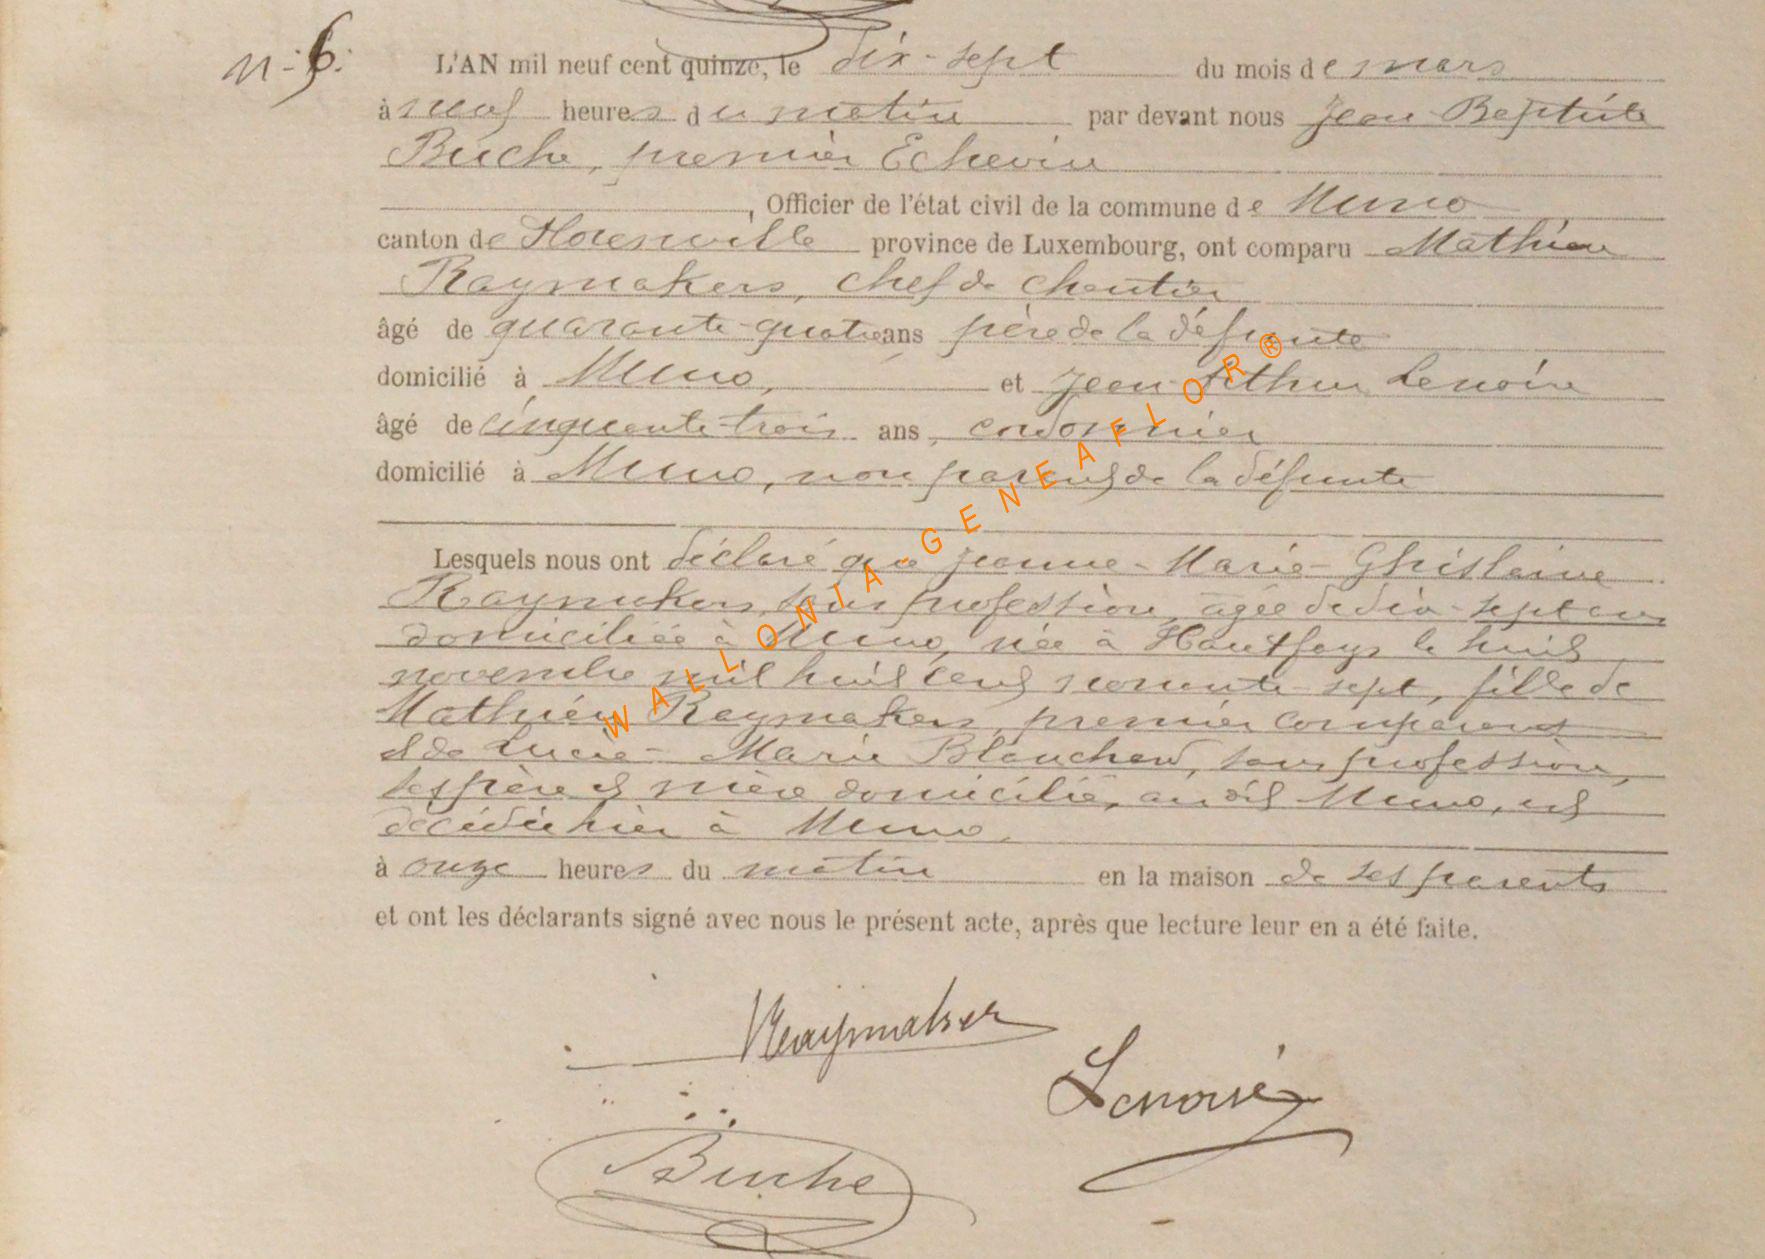 N° 6.
L'AN mil neuf cent quinze, le dix-sept du mois de mars
à neuf heures du matin par devant nous Jean Baptiste
Buche, premier Echevin
, Officier de l'état civil de la commune de Muno
canton de Florenville province de Luxembourg, ont comparu Mathieu
Raymakers, chef de chantier
âgé de quarante-quatre ans père de la défunte
domicilié à Muno, et Jean Arthur Lenoir
âgé de cinquante-trois ans, cordonnier
domicilié à Muno, non parent de la défunte
Lesquels nous ont déclaré que Jeanne-Marie-Ghislaine
Raymakers, sans profession, âgée de dix-sept ans
domiciliée à Muno, née à Hautfays le huit
novembre mil huit cent nonante-sept, fille de
Mathieu Raymakers, premier comparant
et de Lucie-Marie Blanchard, sans profession,
ses père et mère domiciliés, audit Muno, est
décédée hier à Muno.
à onze heures du matin en la maison de ses parents
et ont les déclarants signé avec nous le présent acte, après que lecture leur en a été faite.
Raymakers
Lenoir
Buche
WALLONIA-GENEAFLOR®